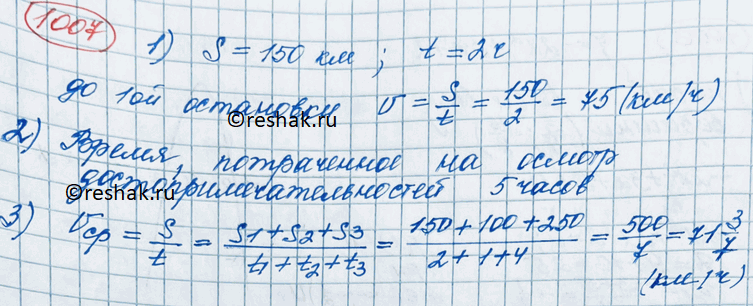 1007
1) S = 150 км ; t = 2ч
до 1ой остановки v = S/t = 150/2 = 75 (км/ч)
©reshak.ru
2) Время, потраченное на осмотр
достопримечательностей 5 часов
©reshak.ru
3) Vср = S/t = (S1+S2+S3)/(t1+t2+t3) = (150+100+250)/(2+1+4) = 500/7 = 71 3/7
(км/ч)